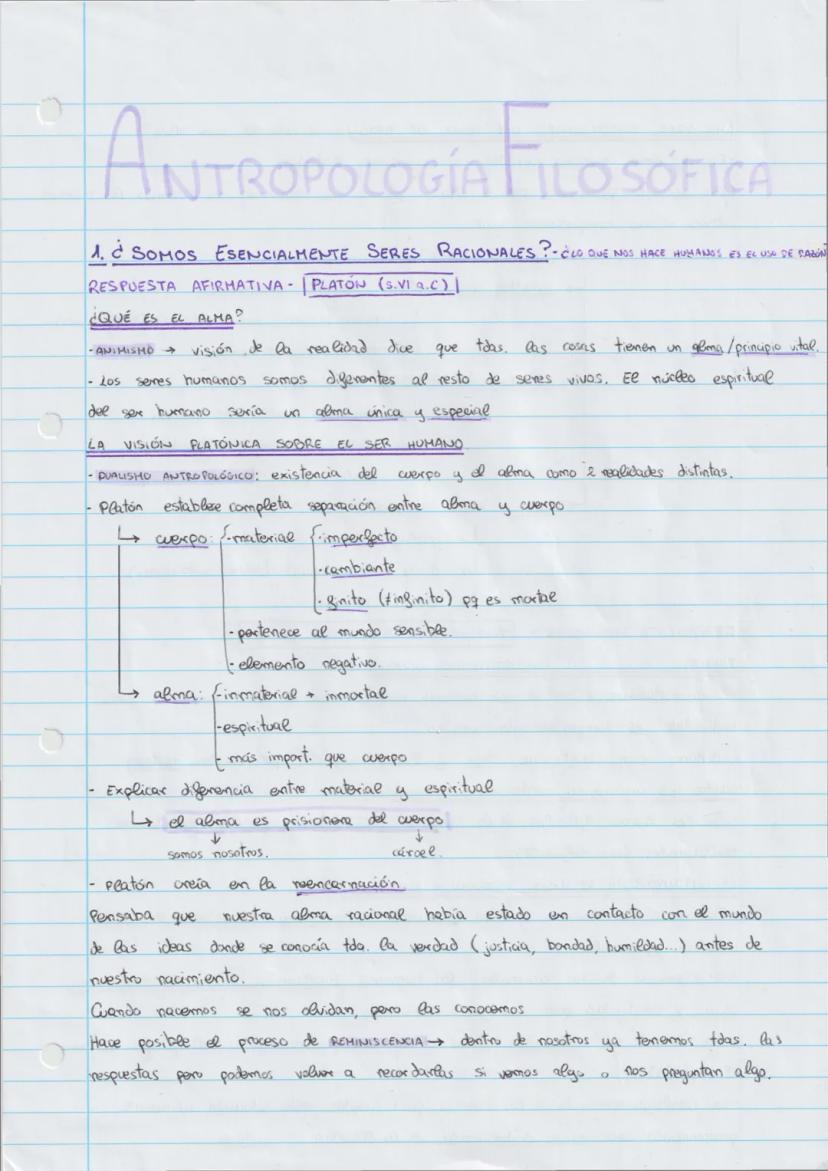 ANTROPOLOGÍA FILOSÓFICA
1. ¿SOMOS ESENCIALMENTE SERES RACIONALES? - ¿LO QUE NOS HACE HUMANOS ES EL USO DE RAZÓN
RESPUESTA AFIRMATIVA - PLATÓN (s.VI a.C)
¿QUÉ ES EL ALMA?
- ANIMISMO → visión de la realidad dice que tdas. las cosas tienen un alma/principio vital.
- Los seres humanos somos diferentes al resto de seres vivos. El núcleo espiritual
del ser humano sería un alma única y especial
LA VISIÓN PLATÓNICA SOBRE EL SER HUMANO
- DUALISMO ANTROPOLÓGICO: existencia del cuerpo y el alma como 2 realidades distintas.
- Platón establece completa separación entre alma y cuerpo
↳ cuerpo: - material - imperfecto
- cambiante
- finito (≠infinito) pq es mortal
- pertenece al mundo sensible.
- elemento negativo.
↳ alma: - inmaterial + inmortal
- espiritual
- más import. que cuerpo
- Explicar diferencia entre material y espiritual
↳ el alma es prisionera del cuerpo
↓ ↓
somos nosotros. cárcel.
- Platón creía en la reencarnación
Pensaba que nuestra alma racional había estado en contacto con el mundo
de las ideas donde se conocía tda. la verdad (justicia, bondad, humildad...) antes de
nuestro nacimiento.
Cuando nacemos se nos olvidan, pero las conocemos
Hace posible el proceso de REMINISCENCIA → dentro de nosotros ya tenemos tdas. las
respuestas pero podemos volver a recordarlas si vemos algo o nos preguntan algo.